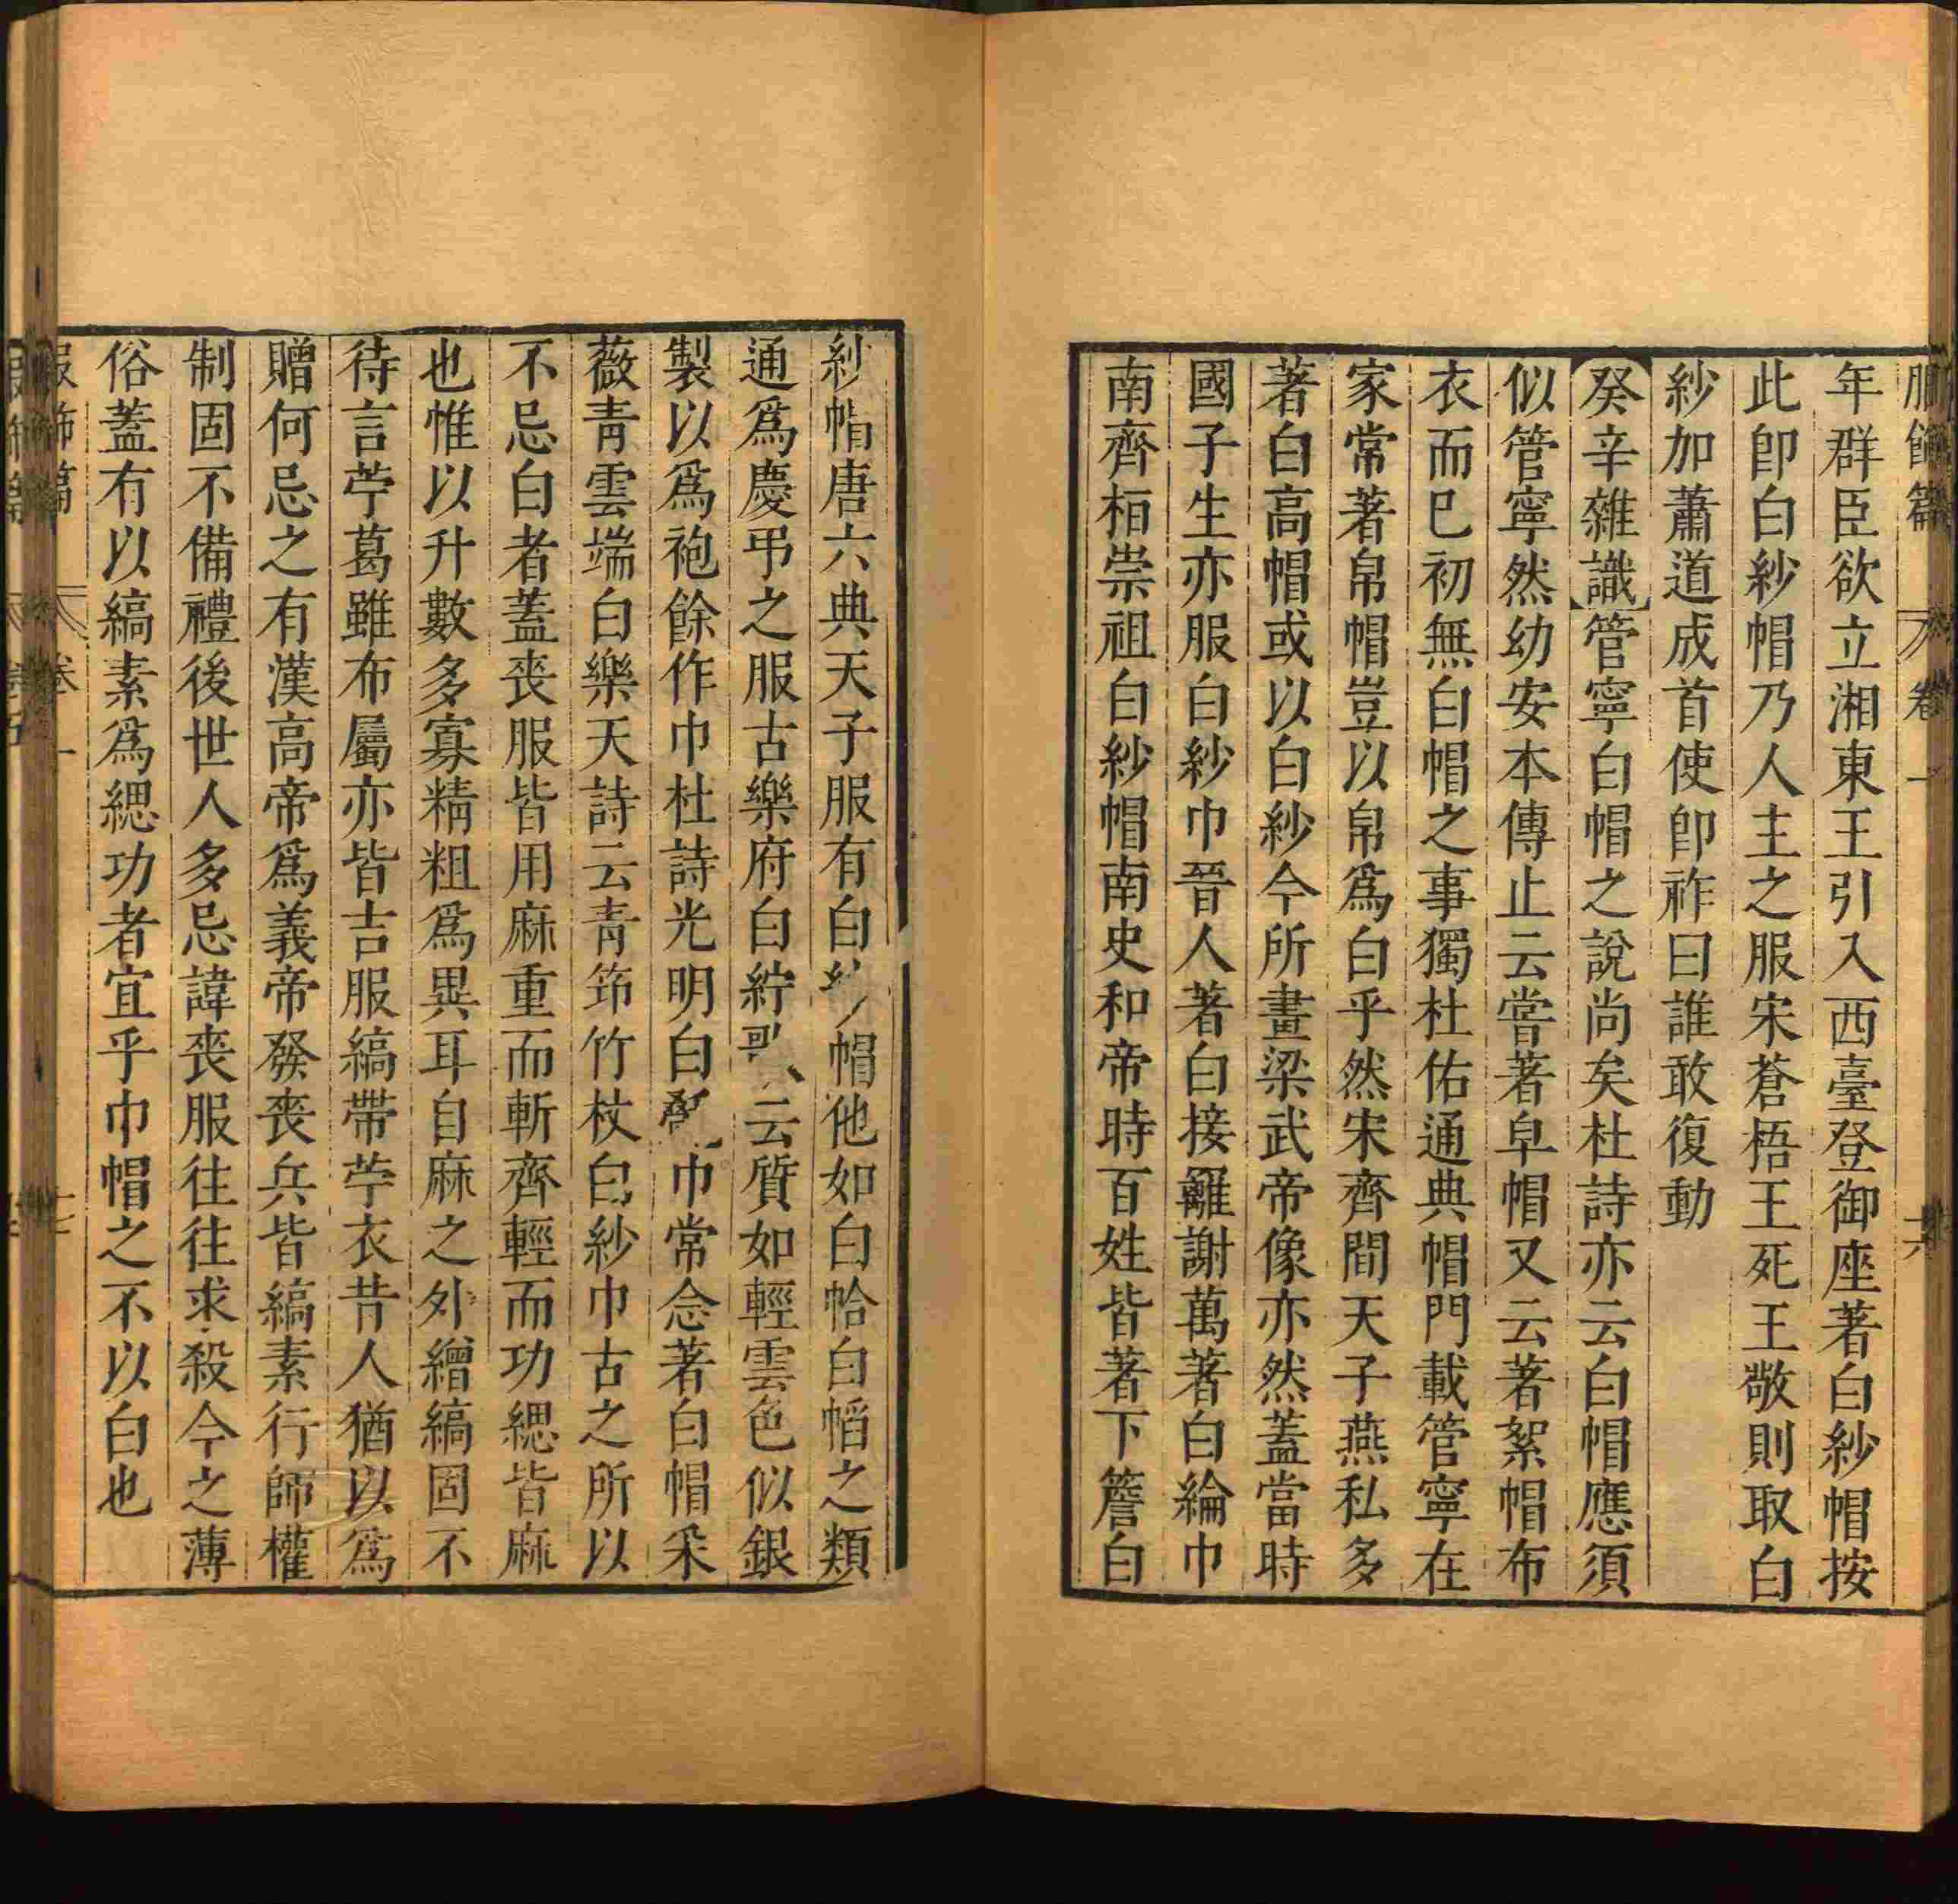 服飾篇 卷一 十六
年群臣欲立湘東王引入西臺登御座著白紗帽按
此卽白紗帽乃人主之服宋蒼梧王死王敬則取白
紗加蕭道成首使卽祚曰誰敢復動
癸辛雜識管寧白帽之說尚矣杜詩亦云白帽應須
似管寧然幼安本傳止云嘗著皁帽又云著絮帽布
衣而巳初無白帽之事獨杜佑通典帽門載管寧在
家常著帛帽豈以帛爲白乎然宋齊間天子燕私多
著白高帽或以白紗今所畫梁武帝像亦然蓋當時
國子生亦服白紗巾晉人著白接䍦謝萬著白綸巾
南齊桓崇祖白紗帽南史和帝時百姓皆著下簷白
紗帽唐六典天子服有白紗帽他如白帢白幍之類
通爲慶弔之服古樂府白紵歌云質如輕雲色似銀
製以爲袍餘作巾杜詩光明白氎巾常念著白帽采
薇青雲端白樂天詩云青筇竹杖白紗巾古之所以
不忌白者蓋喪服皆用麻重而斬齊輕而功緦皆麻
也惟以升數多寡精粗爲異耳自麻之外繒縞固不
待言苧葛雖布屬亦皆吉服縞帶苧衣昔人猶以爲
贈何忌之有漢高帝爲義帝發喪兵皆縞素行師權
制固不備禮後世人多忌諱喪服往往求殺今之薄
俗蓋有以縞素爲緦功者宜乎巾帽之不以白也
服飾篇 卷一 十七